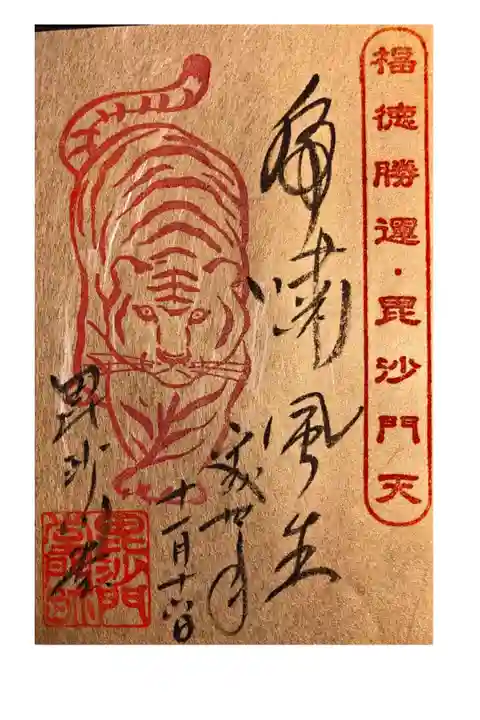 福徳勝運・毘沙門天
虎嘯風生
十一月十六日
毘沙門堂